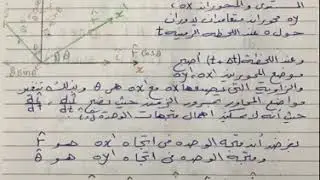 المستوى والمحوران ox ،
oy محوران متعامدان يدوران
حول o عند اللحظة الزمنية t
وعند اللحظة (t + Δt) أصبح
موضع المحوران ox' ، oy'
والزاوية التي يصنعها ox' مع ox هو θ ولذلك تتغير
مواضع المحاور بمرور الزمن حيث تصبح
حيث أنه لا يمكن اهمال متجهات الوحدة
نفرض أن متجه الوحدة فى اتجاه ox' هو r̂
ومتجه الوحدة فى اتجاه oy' هو θ̂
x'
θ
cosθ